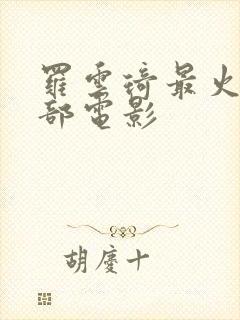 羅雲琦最火
部電影
胡慶十